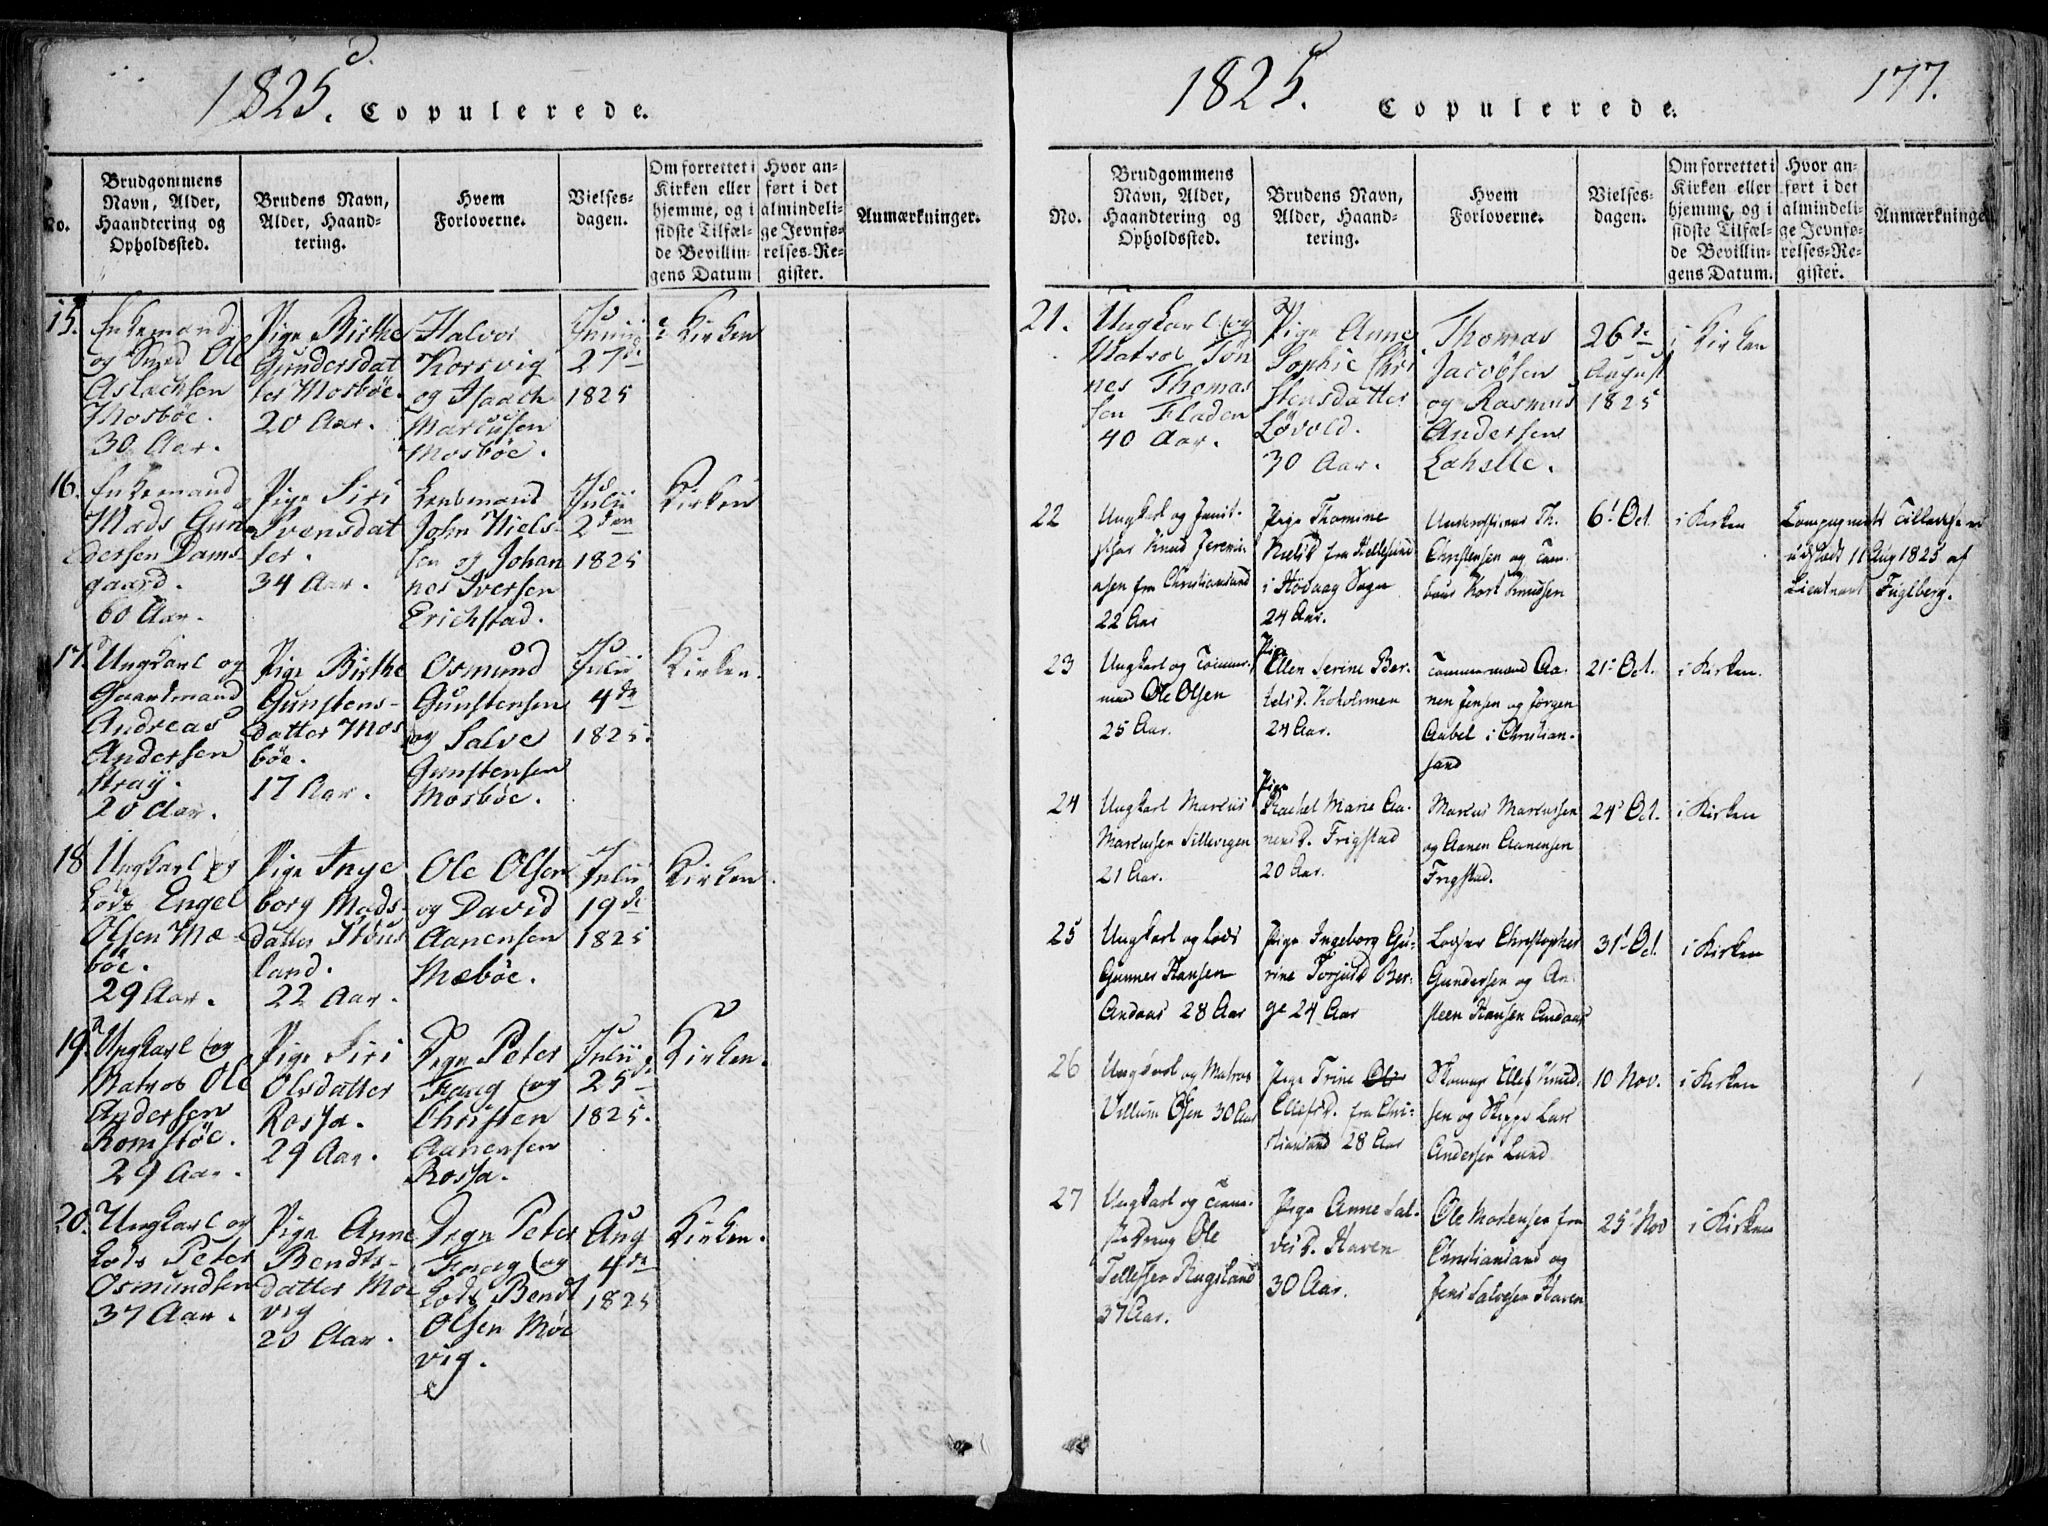 1825. Copulerede.
No.
Brudgommens
Navn, Alder,
Haandtering og
Opholdssted.
Brudens Navn,
Alder, Haand-
tering.
Hvem
Forloverne.
Vielses-
dagen.
Om forrettet i
Kirken eller
hjemme, og i
sidste Tilfæl-
de Bevillin-
gens Datum
Hvor an-
ført i det
almindeli-
ge Jevnfø-
relses-Re-
gister.
Anmærkninger.
15.
Enkemand
og Smed Ole
Aslachsen
Mosbøe.
30 Aar.
Pige Birthe
Gundersdat
ter Mosbøe.
20 Aar.
Halvor
Korsvig
og Isaach
Marcusen
Mosbøe.
Junii
27de
1825
i Kirken
16.
Enkemand
Mads Gun
dersen Dams
gaard.
60 Aar.
Pige Siri
Svensdat
ter.
34 Aar.
Lensmand
John Niels-
sen og Johan
nes Iversen
Erichstad.
Julii
2den
1825
Kirken
17.
Ungkarl og
Gaardmand
Andreas
Andersen
Stray.
20 Aar.
Pige Birthe
Gunstens-
datter Mos
bøe.
17 Aar.
Osmund
Gunstensen
og Salve
Gunstensen
Mosbøe.
Julii
4de
1825.
Kirken.
18
Ungkarl og
Lods Engel
Olsen Mæ-
bøe.
29 Aar.
Pige Inge
borg Mads-
datter
land.
22 Aar.
Ole Olsen
og David
Aanensen
Mæbøe.
Julii
19de
1825
Kirken
19.
Ungkarl og
Matros Ole
Andersen
Romstøe.
29 Aar.
Pige Siri
Olsdatter
Rossa.
29 Aar.
Degn Peter
Faag og
Christen
Aanensen
Rossa.
Julii
25de
1825.
Kirken.
20.
Ungkarl og
Lods Peter
Osmundsen
37 Aar.
Pige Anne
Bendts-
datter Moe
vig
20 Aar.
Degn Peter
Faag og
Lods Bendt
Olsen Moe
vig.
Aug
4de
1825
Kirken.
1825. Copulerede. 177.
No.
Brudgommens
Navn, Alder,
Haandtering og
Opholdssted.
Brudens Navn,
Alder, Haand-
tering.
Hvem
Forloverne.
Vielses-
dagen.
Om forrettet i
Kirken eller
hjemme, og i
sidste Tilfæl-
de Bevillin-
gens Datum.
Hvor an-
ført i det
almindeli-
ge Jevnfø-
relses-Re-
gister.
Anmærkninge
21.
Ungkarl og
Matros Tøn
nes Thomas
sen Fladen
40 Aar.
Pige Anne
Sophie Chri
stensdatter
Løvold.
30 Aar.
Thomas
Jacobsen
og Rasmus
Andersen
Lahelle.
26de
August
1825
i Kirken
22
Ungkarl og
Knud Jeremi-
asen fra Christiansand
22 Aar
Pige Thomine
Nielsd. fra Hellesund
i Høvaag Sogn
24 Aar.
Underofficeer Th.
Christensen og Tam-
bour Kort Knudsen
6t Oct.
i Kirken
Compagniets Tilladelse er
udstædt 11 Aug 1825 af
Lieutenant Fuglberg.
23
Ungkarl og Tømmer-
mand Ole Olsen
25 Aar.
Pige
Ellen Serine Ber-
telsd. Kokolmen
24 Aar.
Tømmermand Aa-
nen Jensen og Jørgen
Aabel i Christian-
sand
21t Oct.
i Kirken.
24
Ungkarl Marcus
Marcussen Sillevigen
21 Aar.
Pige
Rachel Marie Aa-
nensd. Frigstad
20 Aar.
Marcus Marcussen
og Aanen Aanensen
Frigstad.
24t Oct.
i Kirken
25
Ungkarl og Lods
Gunner Hansen
Andaas 28 Aar
Pige Ingeborg Gu-
rine Torjusd Ber-
ge 24 Aar
Lodser Christopher
Gundersen og An-
steen Hansen Andaas
31t Oct.
i Kirken
26
Ungkarl og Matros
Villum Olsen 30 Aar
Pige Trine
Ellefsd. fra Chri-
stiansand 28 Aar
Skomag Ellef Knud-
sen og Skipper Lars
Andersen Lund
10 Nov.
i Kirken
27
Ungkarl og
Ole
Tellefsen Rugsland
37 Aar.
Pige Anne Sal-
vesd. Haven
30 Aar.
Ole Mortensen fra
Christiansand og
Jens Salvesen Haven
25t Nov
i Kirken